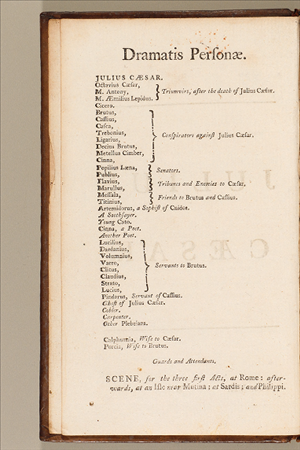 Dramatis Personæ.
JULIUS CÆSAR.
Octavius Cæsar,
M. Antony,
M. Æmilius Lepidus.
Triumvirs, after the death of Julius Cæsar.
Cicero.
Brutus,
Cassius,
Casca,
Trebonius,
Ligarius,
Decius Brutus,
Metellus Cimber,
Cinna,
Conspirators against Julius Cæsar.
Popilius Læna,
Publius,
Senators.
Flavius,
Marullus,
Tribunes and Enemies to Cæsar.
Messala,
Titinius,
Friends to Brutus and Cassius.
Artemidorus, a Sophist of Cnidos.
A Soothsayer.
Young Cato.
Cinna, a Poet.
Another Poet.
Lucilius,
Dardanius,
Volumnius,
Varro,
Clitus,
Claudius,
Strato,
Lucius,
Servants to Brutus.
Pindarus, Servant of Cassius.
Ghost of Julius Cæsar.
Cobler.
Carpenter.
Other Plebeians.
Calphurnia, Wife to Cæsar.
Portia, Wife to Brutus.
Guards and Attendants.
SCENE, for the three first Acts, at Rome: after-
wards, at an Isle near Mutina; at Sardis; and Philippi.